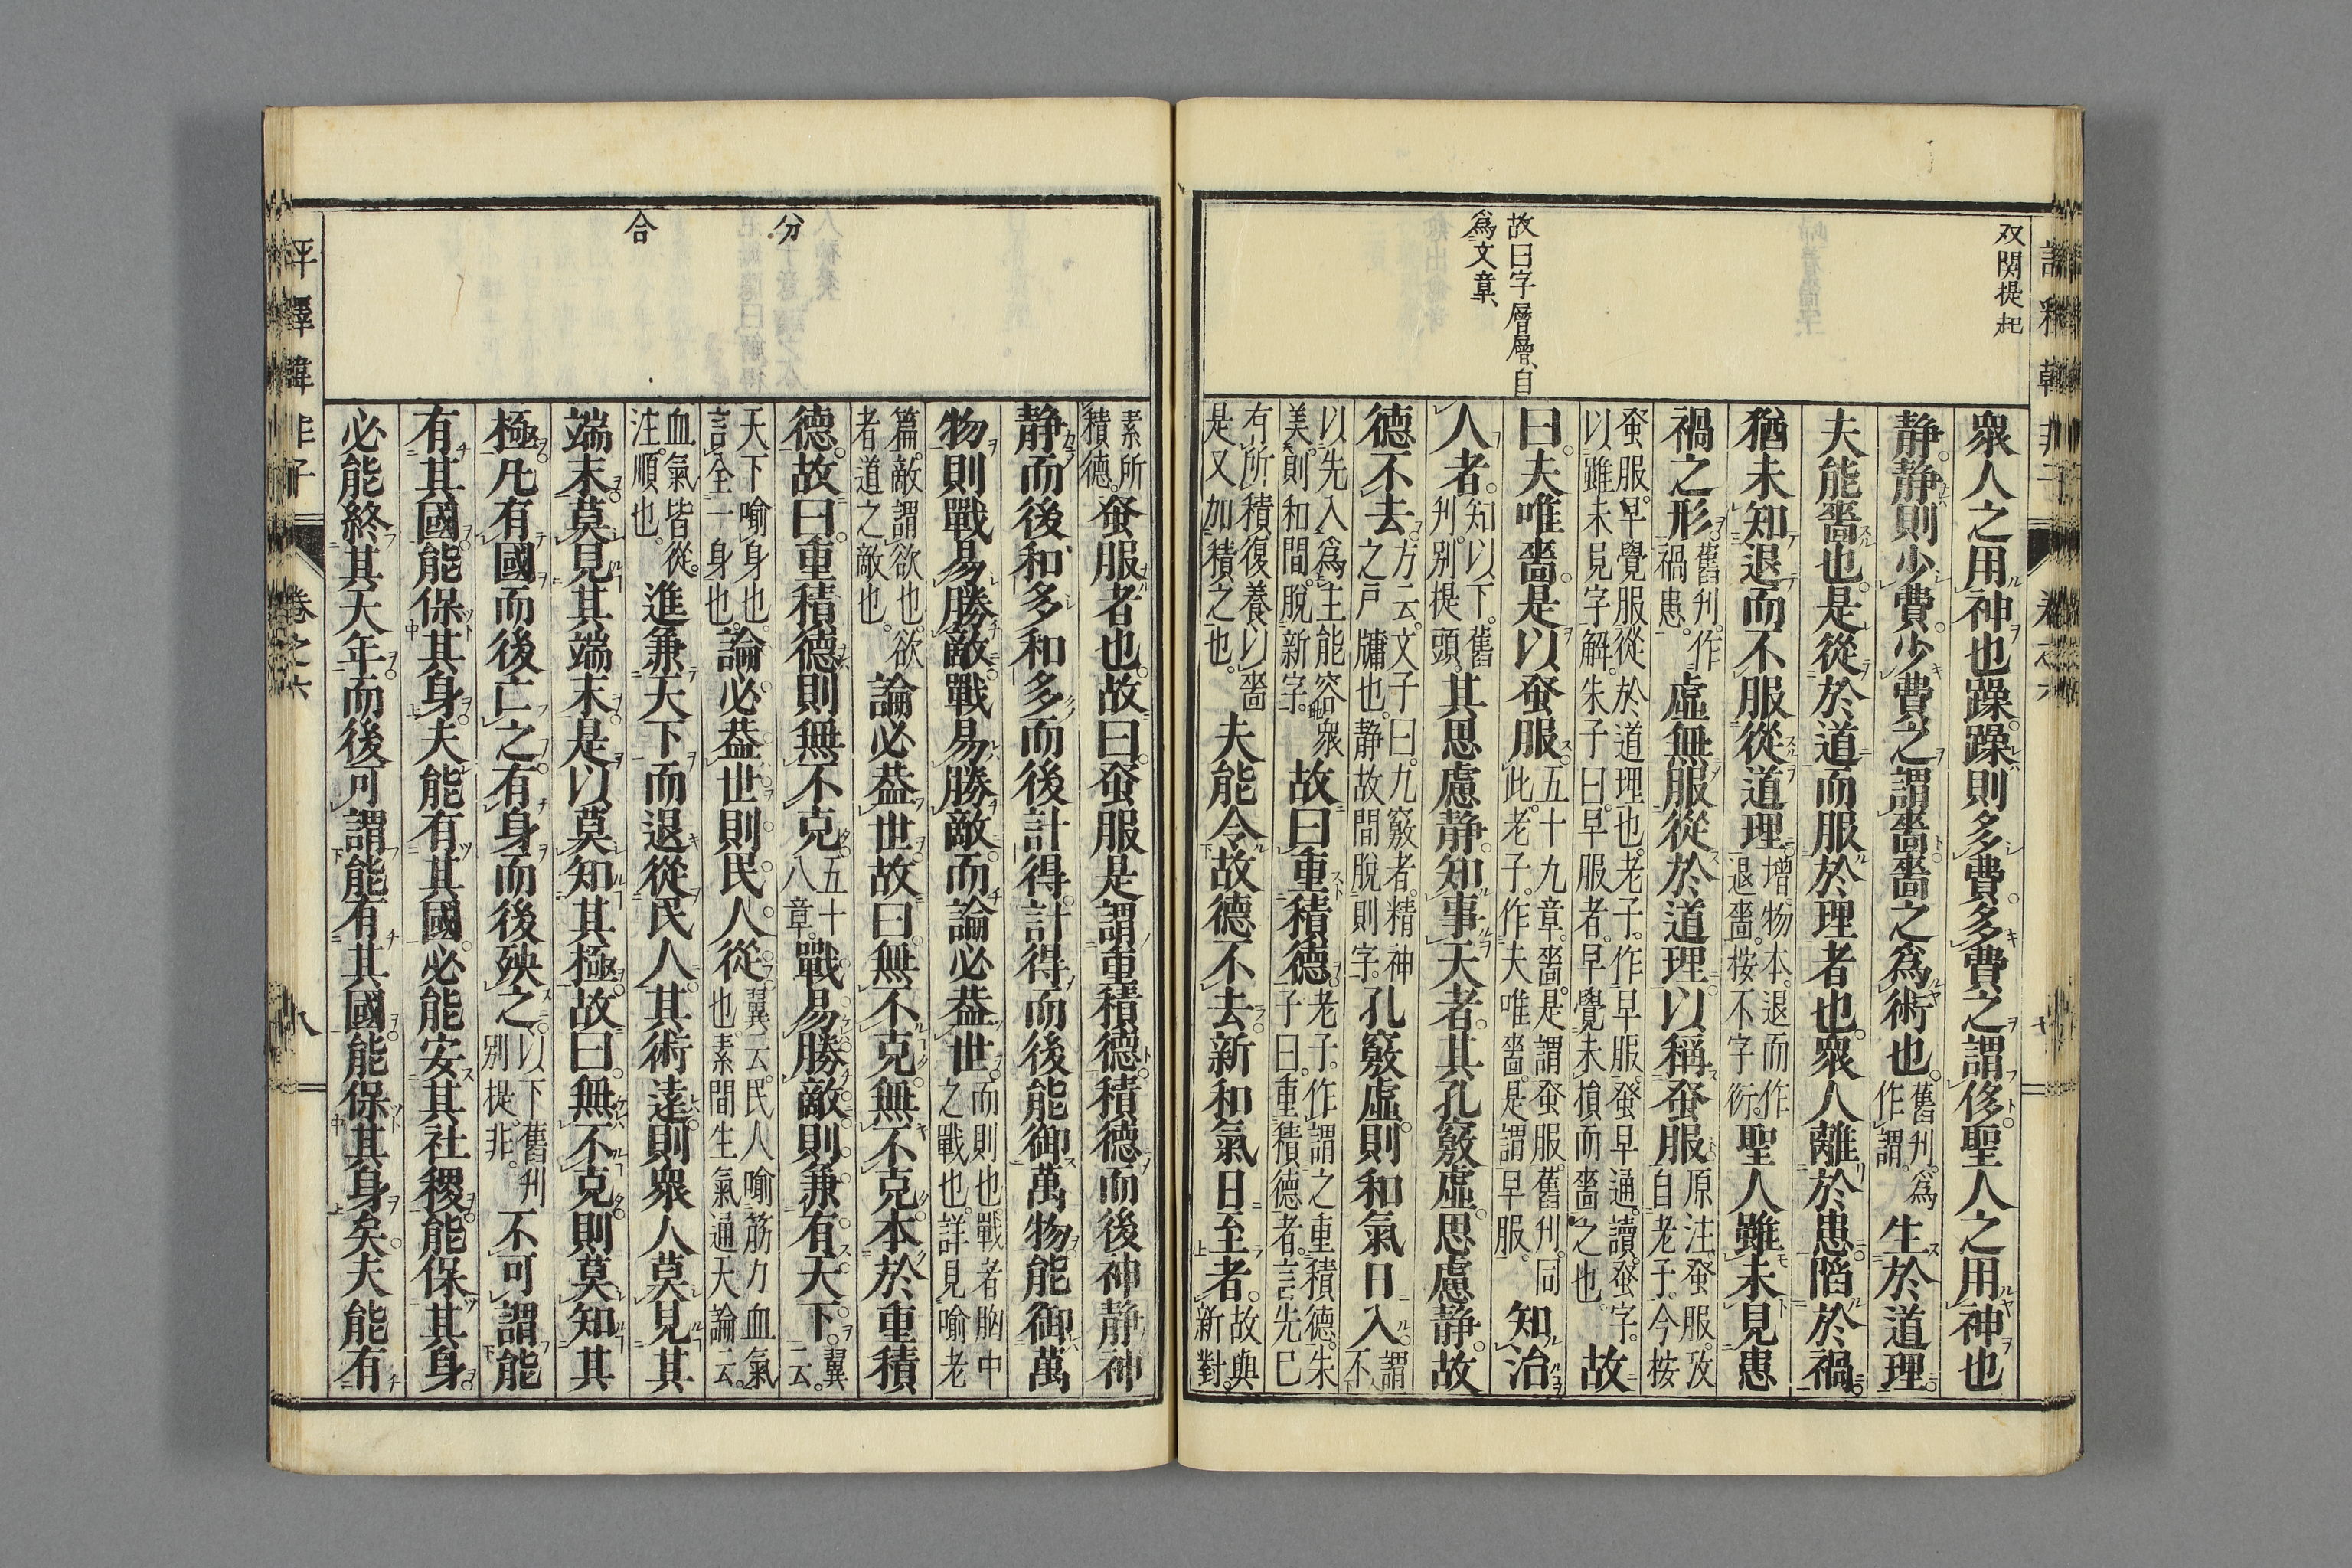 双関提起
故曰字層層自
為文章
衆人之用神也躁躁則多費多費之謂侈聖人之用神也
静静則少費少費之謂嗇嗇之為術也舊刋為作謂生於道理
夫能嗇也是從於道而服於理者也衆人離於患陷於禍
猶未知退而不服從道理增物本退而作退嗇按不字衍聖人雖未見患
禍之形舊刋作禍患虛無服從於道理以稱蚤服原注蚤服攷自老子今按
蚤服早覺服從於道理也老子作早服蚤早通讀蚤字以雖未見字解朱子曰早服者早覺未損而嗇之也故
曰夫唯嗇是以蚤服五十九章嗇是謂蚤服舊刋同此老子作夫唯嗇是謂早服知治
人者知以下舊刋別提頭其思慮静知事天者其孔竅虛思慮静故
德不去方云文子曰九竅者精神之戸牖也静故間脫則字孔竅虛則和氣日入謂不
以先入為主能容衆美則和間脫新字故曰重積德老子作謂之重積德朱子曰重積德者言先已
有所積復養以嗇是又加積之也夫能令故德不去新和氣日至者故與新對
分
合
素所積德蚤服者也故曰蚤服是謂重積德積德而後神静神
静而後和多和多而後計得計得而後能御萬物能御萬
物則戰易勝敵戰易勝敵而論必葢世而則也戰者胸中之戰也詳見喻老
篇敵謂欲也欲者道之敵也論必葢世故曰無不克無不克本於重積
德故曰重積德則無不克五十八章戰易勝敵則兼有天下翼云
天下喻身也言全一身也論必葢世則民人從翼云民人喻筋力血氣也素問生氣通天論云
血氣皆從注順也進兼天下而退從民人其術遠則衆人莫見其
端末莫見其端末是以莫知其極故曰無不克則莫知其
極凡有國而後亡之有身而後殃之以下舊刋別提非不可謂能
有其國能保其身夫能有其國必能安其社稷能保其身
必能終其天年而後可謂能有其國能保其身矣夫能有
卷之六
八